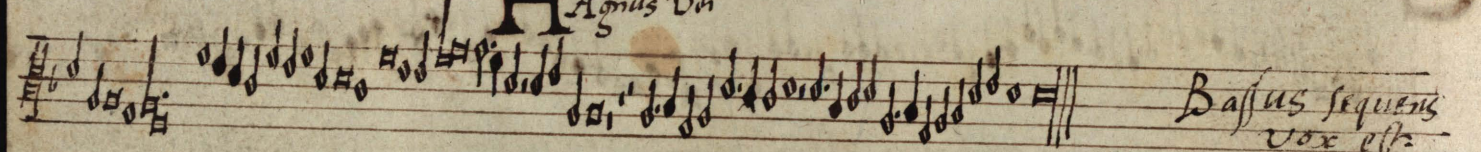 Agnus Dei
Bassus sequens
vox est